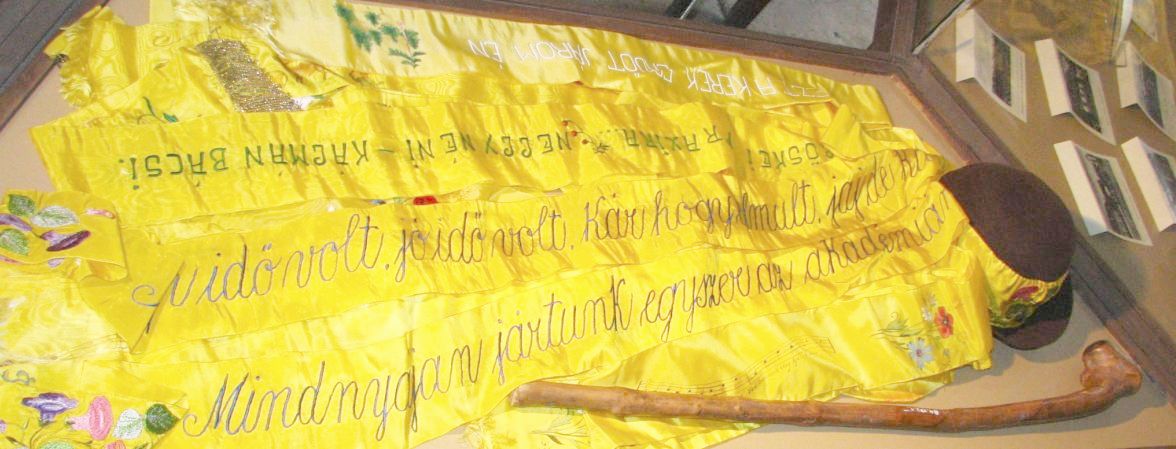 A KEREK ERDŐT JÁROM ÉN
PRAXIRA... NELLY NÉNI - KÁLMÁN BÁCSI.
Jó idő volt, jó idő volt. Kár hogy elmult, jaj de
Mindnyájan jártunk egyszer az akadémián